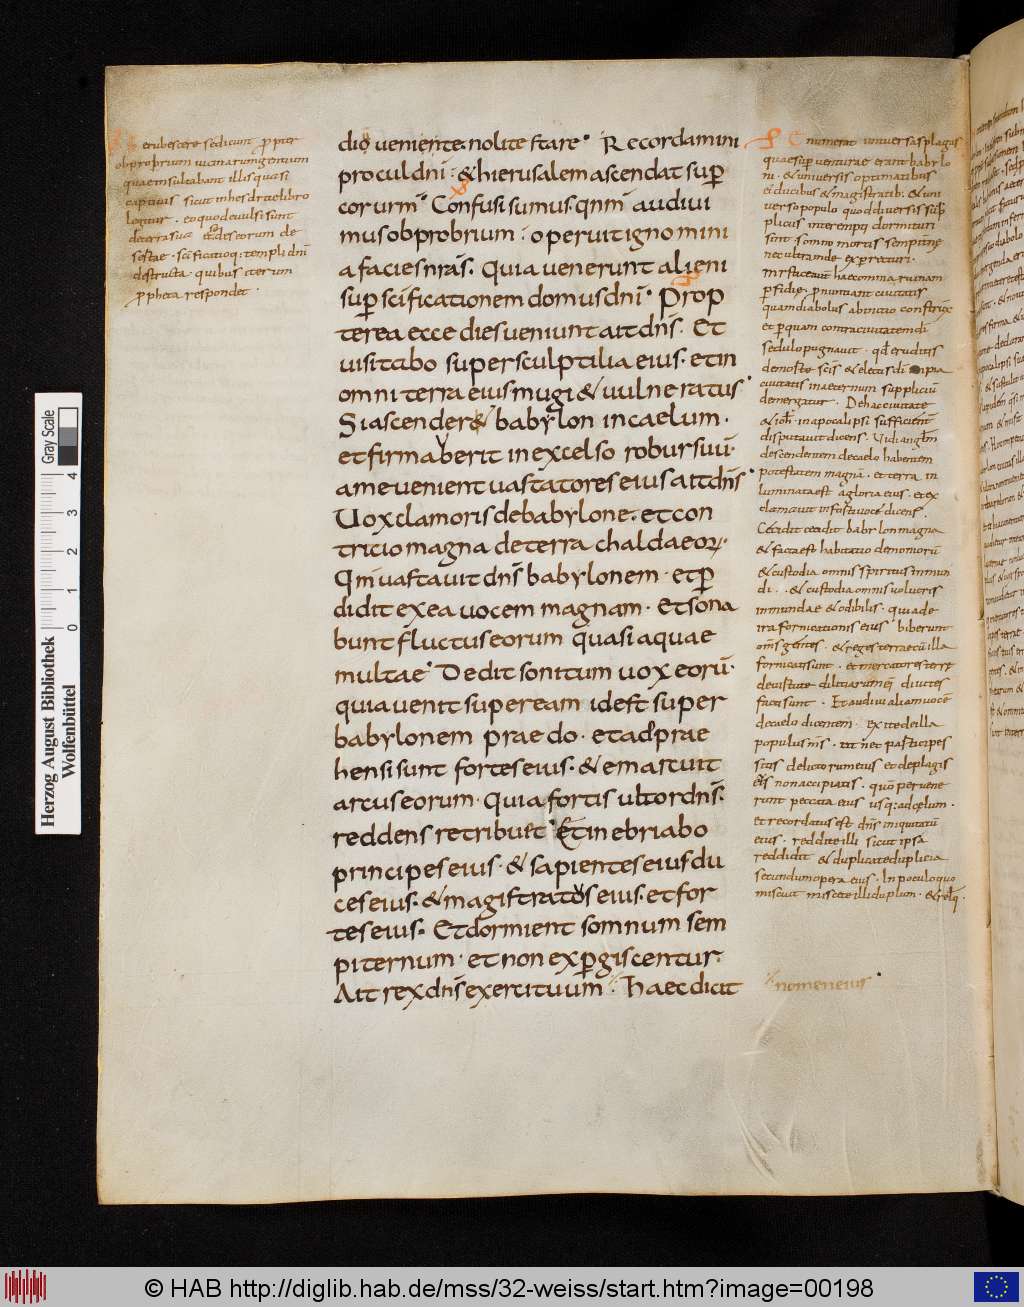 erubescere se dicunt ꝓpter
obprobrium uicinarum gentium
quae insultabant illis quasi
captiuis sicut in hesdrae libro
legitur · eo quod euulsi sunt
de terra sua & sedes eorum de
sertae · scificatioq; templi dni
destructa · quibus iterum
ꝓpheta respondet ·
dio uenite nolite stare · Recordamini
procul dni : & hierusalem ascendat suꝑ
cor urm · Confusi sumus · qnm audiui
mus obprobrium : operuit ignomini
a facies nras · Quia uenerunt alieni
suꝑ scificationem domus dni · Prop
terea ecce dies ueniunt ait dns · Et
uisitabo super sculptilia eius · et in
omni terra eius mugi& uulneratus ·
Si ascender& babylon in caelum ·
et firmauerit in excelso robur suu ·
a me uenient uastatores eius ait dns ·
Uox clamoris de babylone · et con
tricio magna de terra chaldaeoꝝ ·
Qm uastauit dns babylonem · et ꝑ
didit ex ea uocem magnam · Et sona
bunt fluctus eorum quasi aquae
multae · Dedit sonitum uox eoru ·
quia uenit supeream id est super
babylonem praedo · et adprae
hensi sunt fortes eius · & emarcuit
arcus eorum · Quia fortis ultor dns ·
reddens retribuet · Et inebriabo
principes eius · & sapientes eius du
ces eius · & magistratus eius · et for
tes eius · Et dormient somnum sem
piternum · et non exꝑgiscentur ·
Ait rex dns exercituum · haec dicit
Enumerat uniuersas plagas
quae suꝑ uenturae erant babylo
ni · & uniuersis optimatibus
ei ducibus & magistratib; & uni
uerso populo quod diuersis sup
pliciis interempti dormituri
sint somno mortis sempiternę
nec ultra inde
haec omnia ruinam
ꝑfidię · ciuitatis
quam diabolus ab initio construx
et ꝑ quam contra ciuitatem di
sedulo pugnauit · qd eruditis
scis & electis di impia
ciuitatis in aeternum suppliciu
demergatur · De hac ciuitate
& ioh · in apocalipsi sufficient
disputauit dicens · Uidi anglm
descendentem de caelo habentem
potestatem magna · et terra in
luminata est a gloria eius · et ex
clamauit in forti uoce dicens ·
Cecidit cecidit babylon magna
& facta est habitatio demonioru
& custodia omnis spiritus inmun
di · & custodia omnis uolucris
inmundae & odibilis · quia de
ira fornicationis eius biberunt
oms gentes · & reges terrae cu illa
fornicati sunt · et mercatores terrę
de uirtute diliciarum ei diuites
facti sunt · Et audiui aliam uoce
de caelo dicentem · exite de illa
populus ms · ut ne participes
sitis delictorum eius et de plagis
eius non accipiatis · quo peruene
runt peccata eius usq; ad cęlum ·
et recordatus est dns iniquitatu
eius · reddite illi sicut ipsa
reddidit & duplicate duplicia
secundum opera eius · In poculo quo
miscuit miscete illi duplum · & reliq ·
nomen eius
Herzog August Bibliothek
Wolfenbüttel
0 1 2 3 4
Gray Scale
© HAB http://diglib.hab.de/mss/32-weiss/start.htm?image=00198